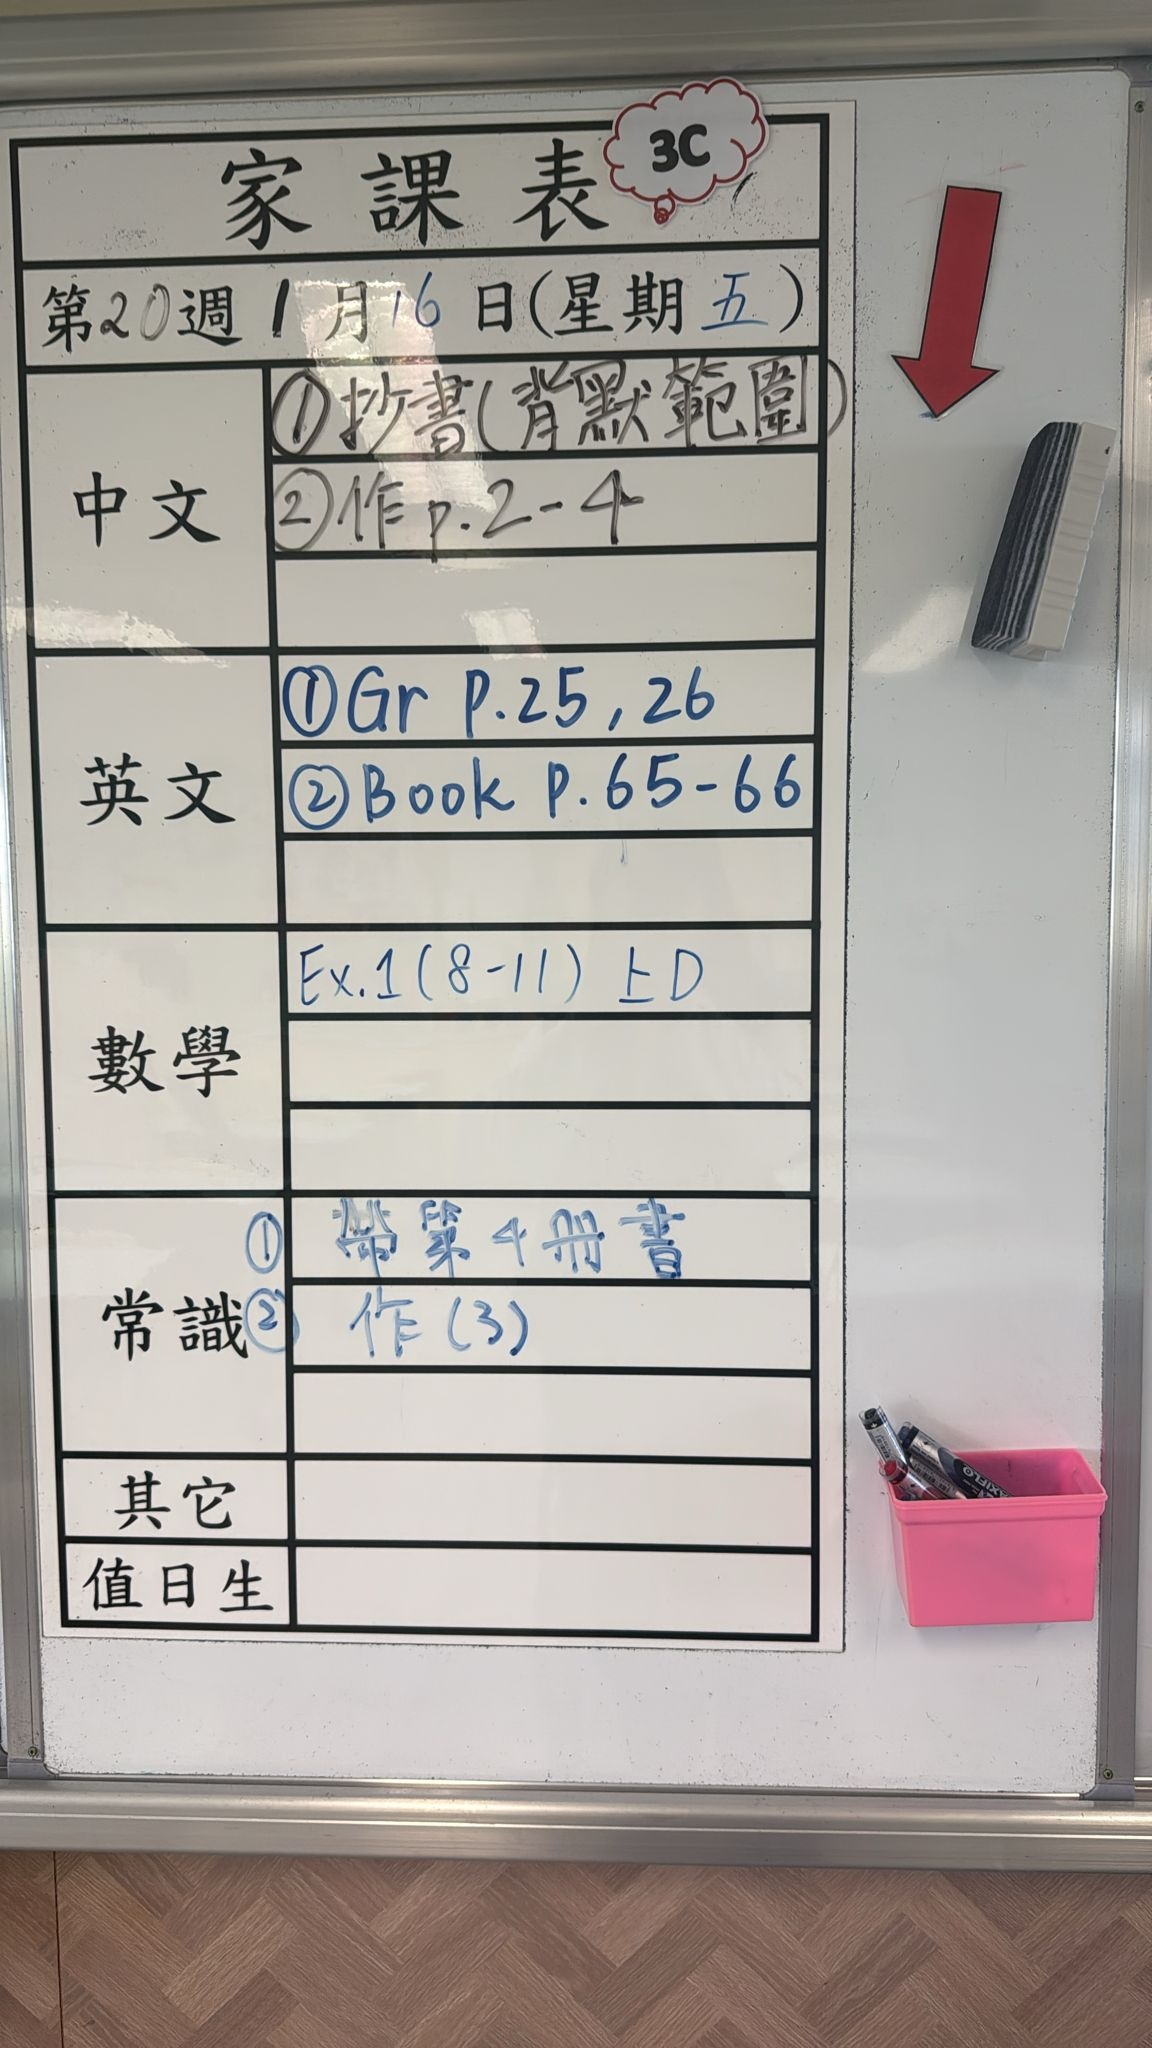 家課表
3C
第20週 1月16日(星期五)
中文
①抄書(背默範圍)
②作p.2-4
英文
①Gr P.25, 26
②Book P.65-66
數學
Ex.1(8-11) 上D
常識
① 帶第4冊書
② 作(3)
其它
值日生